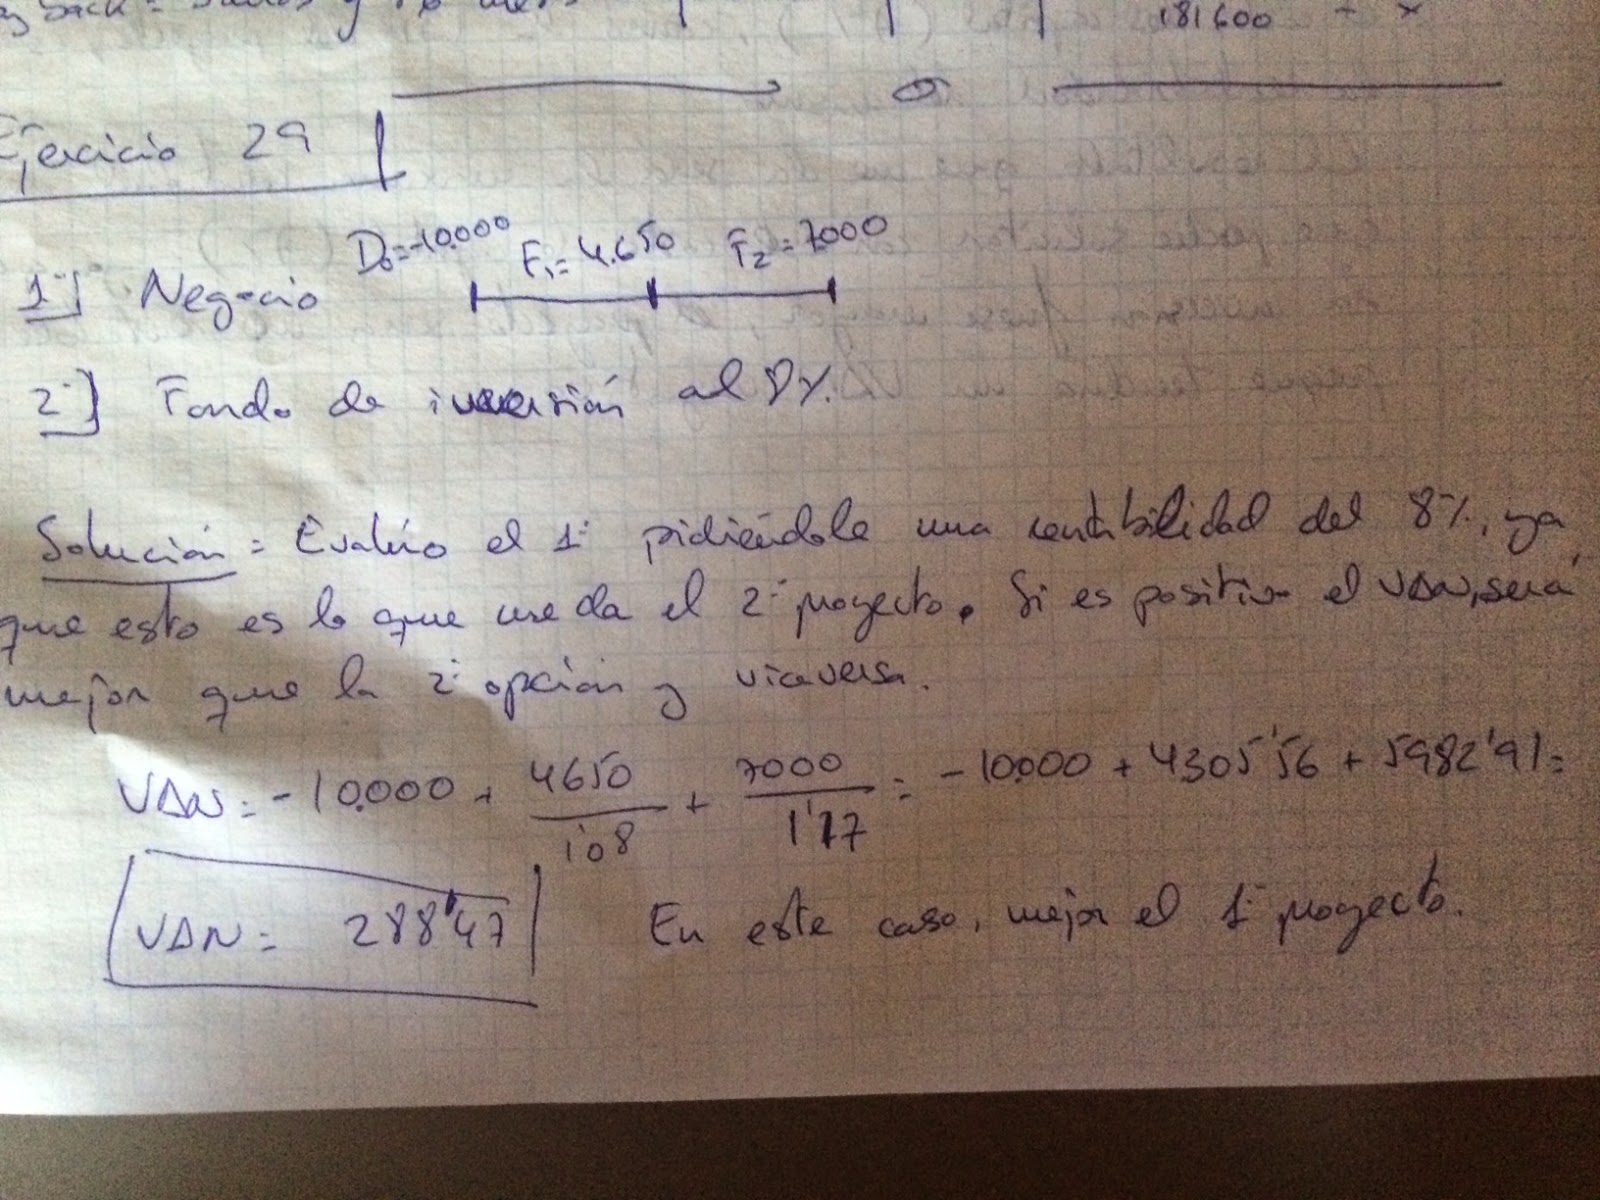 181600 - x
Ejercicio 29
1º] Negocio D₀=-10.000 F₁=4.650 F₂=7000
2º] Fondo de inversión al 8%.
Solución = Evalúo el 1º pidiéndole una rentabilidad del 8%, ya
que esto es lo que me da el 2º proyecto. Si es positivo el VAN, será
mejor que la 2ª opción y viceversa.
VAN = -10.000 + 4650/1'08 + 7000/1'17 = -10.000 + 4305'56 + 5982'91 =
VAN = 288'47 En este caso, mejor el 1º proyecto.